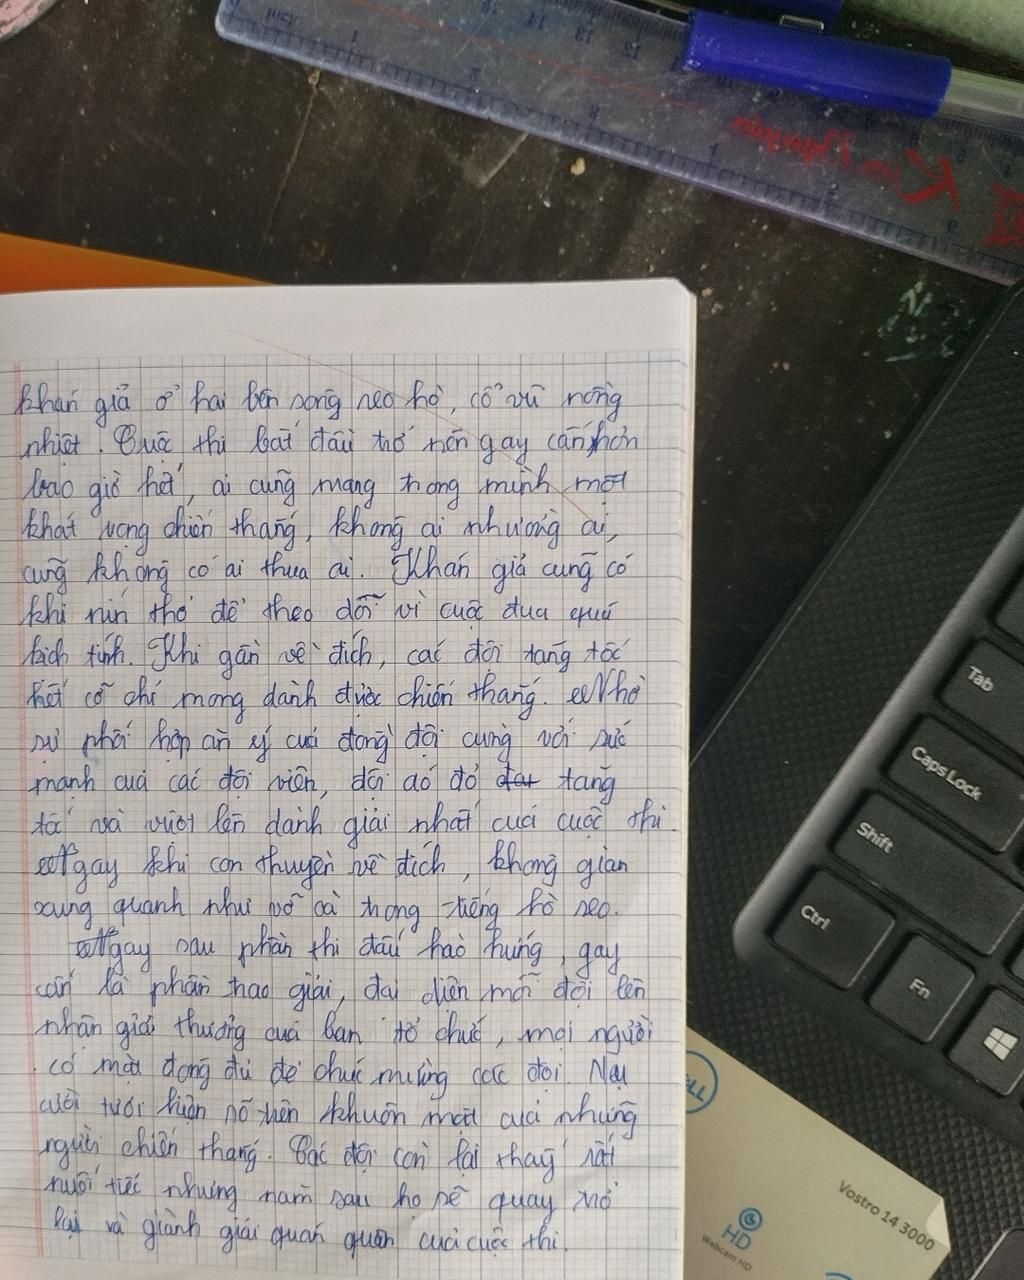 Kim Nguyên
khán giả ở hai bên sông reo hò, cổ vũ nồng
nhiệt. Cuộc thi bắt đầu trở nên gay cấn hơn
bao giờ hết, ai cũng mang trong mình một
khát vọng chiến thắng, không ai nhường ai,
cũng không có ai thua ai. Khán giả cũng có
khi nín thở để theo dõi vì cuộc đua quá
kịch tính. Khi gần về đích, các đội tăng tốc
hết cỡ chỉ mong dành được chiến thắng. Nhờ
sự phối hợp ăn ý của đồng đội cùng với sức
mạnh của các đội viên, đội áo đỏ tăng
tốc và vượt lên dành giải nhất của cuộc thi.
Ngay khi con thuyền về đích, không gian
xung quanh như vỡ oà trong tiếng hò reo.
Ngay sau phần thi đấu hào hứng, gay
cấn là phần trao giải, đại diện mỗi đội lên
nhận giải thưởng của ban tổ chức, mọi người
có mặt đông đủ để chúc mừng các đội. Nụ
cười tươi hiện rõ trên khuôn mặt của những
người chiến thắng. Các đội còn lại thấy rất
nuối tiếc nhưng năm sau họ sẽ quay trở
lại và giành giải quán quân của cuộc thi.
Tab
Caps Lock
Shift
Ctrl
Fn
DELL
Vostro 14 3000
HD
Webcam HD